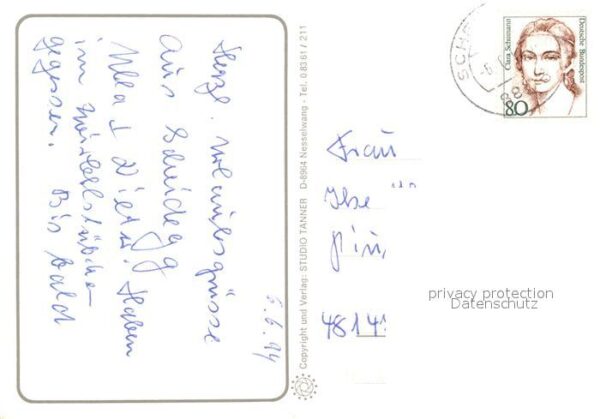 5.6.94
Herzl. Urlaubsgrüsse
aus Scheidegg
Ulla + Dieter. Haben
im Zwirbelstübchen
gegessen. Bis bald
Copyright und Verlag: STUDIO TANNER D-8964 Nesselwang - Tel. 0 83 61 / 211
Clara Schumann
Deutsche Bundespost
80
Frau
Ilse
privacy protection
Datenschutz
4814